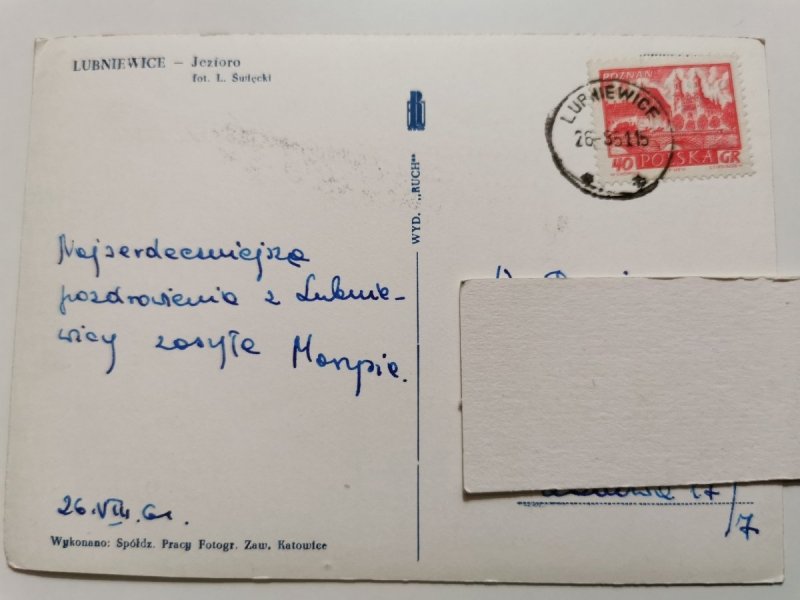 LUBNIEWICE – Jezioro
fot. L. Święcki
WYD. „RUCH"
POZNAŃ
40 POLSKA GR
LUBNIEWICE
Najserdeczniejsze
pozdrowienia z Lubnie-
wicy zasyła
26.VIII.61.
17/7
Wykonano: Spółdz. Pracy Fotogr. Zaw. Katowice